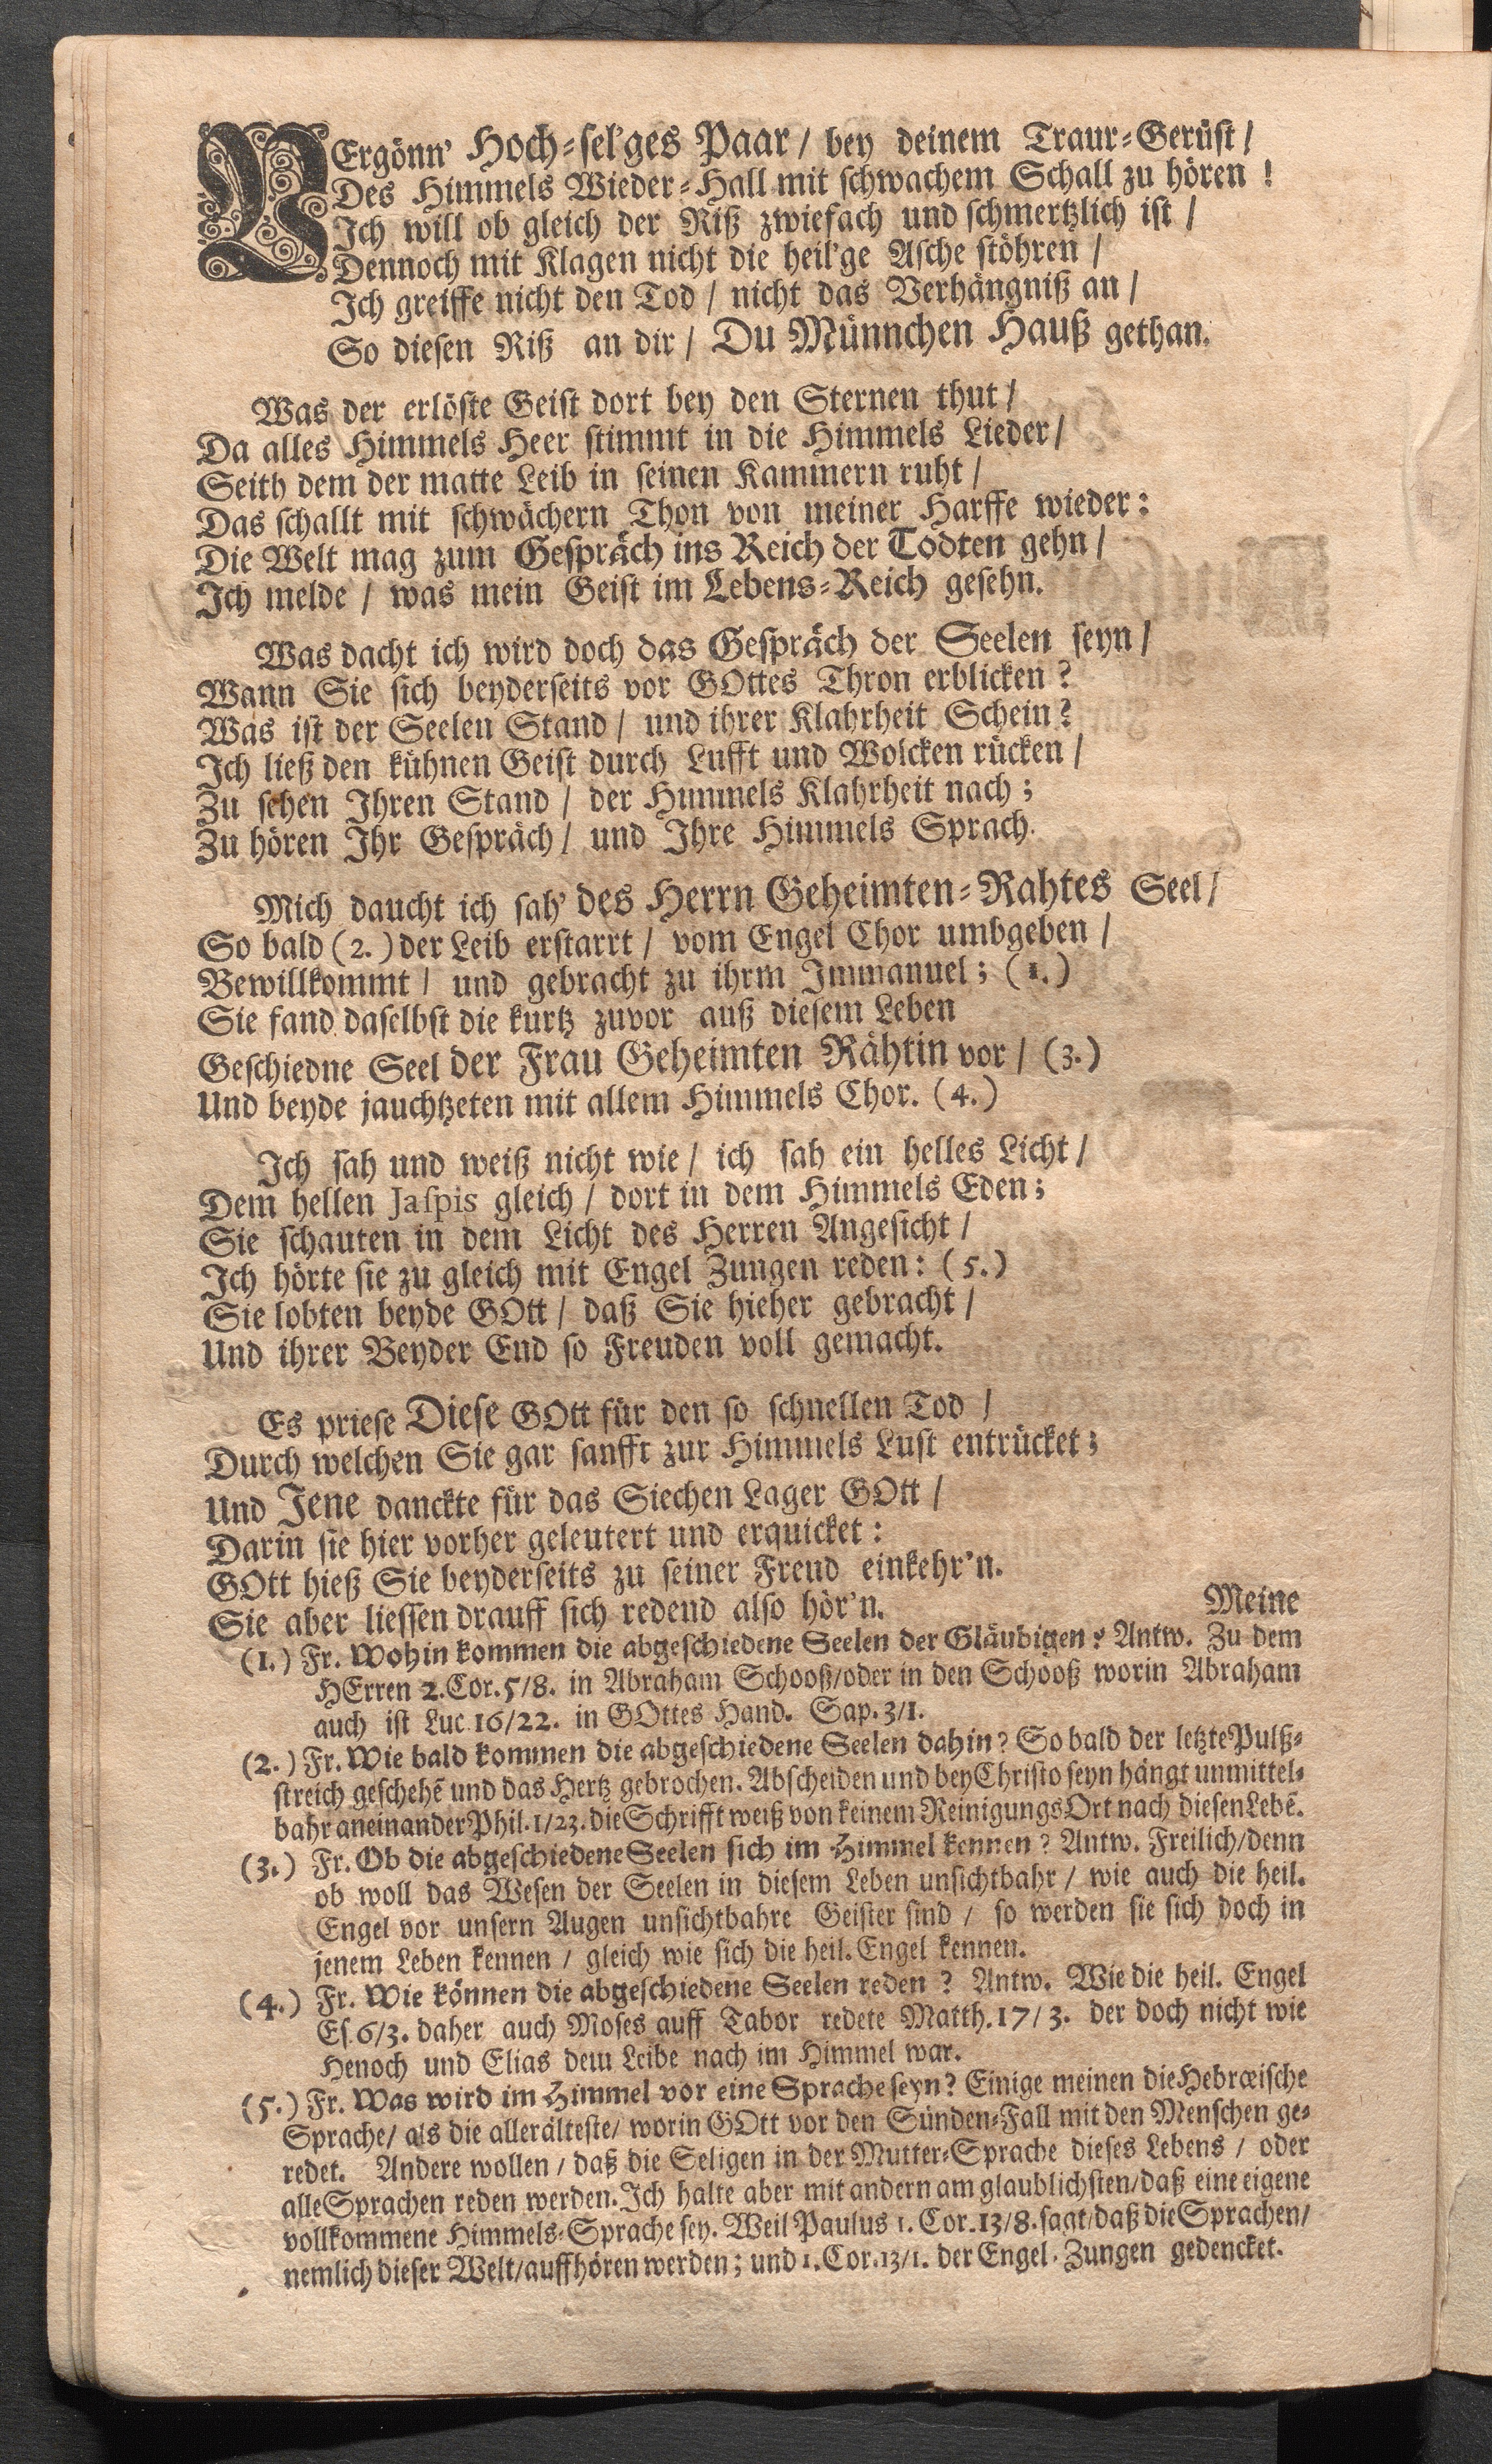 VErgönn' Hoch-sel'ges Paar / bey deinem Traur-Gerüst /
Des Himmels Wieder-Hall mit schwachem Schall zu hören !
Ich will ob gleich der Riß zwiefach und schmertzlich ist /
Dennoch mit Klagen nicht die heil'ge Asche stöhren /
Ich greiffe nicht den Tod / nicht das Verhängniß an /
So diesen Riß an dir / Du Münnchen Hauß gethan.
Was der erlöste Geist dort bey den Sternen thut /
Da alles Himmels Heer stimmt in die Himmels Lieder /
Seith dem der matte Leib in seinen Kammern ruht /
Das schallt mit schwächern Thon von meiner Harffe wieder :
Die Welt mag zum Gespräch ins Reich der Todten gehn /
Ich melde / was mein Geist im Lebens-Reich gesehn.
Was dacht ich wird doch das Gespräch der Seelen seyn /
Wann Sie sich beyderseits vor GOttes Thron erblicken ?
Was ist der Seelen Stand / und ihrer Klahrheit Schein ?
Ich ließ den kühnen Geist durch Lufft und Wolcken rücken /
Zu sehen Ihren Stand / der Himmels Klahrheit nach ;
Zu hören Ihr Gespräch / und Ihre Himmels Sprach.
Mich daucht ich sah' des Herrn Geheimten-Rahtes Seel /
So bald (2.) der Leib erstarrt / vom Engel Chor umbgeben /
Bewillkommt / und gebracht zu ihrm Immanuel ; (1.)
Sie fand daselbst die kurtz zuvor auß diesem Leben
Geschiedne Seel der Frau Geheimten Rähtin vor / (3.)
Und beyde jauchtzeten mit allem Himmels Chor. (4.)
Ich sah und weiß nicht wie / ich sah ein helles Licht /
Dem hellen Jaspis gleich / dort in dem Himmels Eden ;
Sie schauten in dem Licht des Herren Angesicht /
Ich hörte sie zu gleich mit Engel Zungen reden : (5.)
Sie lobten beyde GOtt / daß Sie hieher gebracht /
Und ihrer Beyder End so Freuden voll gemacht.
Es priese Diese GOtt für den so schnellen Tod /
Durch welchen Sie gar sanfft zur Himmels Lust entrücket ;
Und Jene danckte für das Siechen Lager GOtt /
Darin sie hier vorher geleutert und erquicket :
GOtt hieß Sie beyderseits zu seiner Freud einkehr'n.
Sie aber liessen drauff sich redend also hör'n.
Meine
(1.) Fr. Wohin kommen die abgeschiedene Seelen der Gläubigen ? Antw. Zu dem
HErren 2. Cor. 5/8. in Abraham Schooß/oder in den Schooß worin Abraham
auch ist Luc 16/22. in GOttes Hand. Sap. 3/1.
(2.) Fr. Wie bald kommen die abgeschiedene Seelen dahin ? So bald der letzte Pulß-
streich geschehē und das Hertz gebrochen. Abscheiden und bey Christo seyn hängt unmittel-
bahr aneinander Phil. 1/23. die Schrifft weiß von keinem Reinigungs Ort nach diesen Lebē.
(3.) Fr. Ob die abgeschiedene Seelen sich im Himmel kennen ? Antw. Freilich/denn
ob woll das Wesen der Seelen in diesem Leben unsichtbahr / wie auch die heil.
Engel vor unsern Augen unsichtbahre Geister sind / so werden sie sich doch in
jenem Leben kennen / gleich wie sich die heil. Engel kennen.
(4.) Fr. Wie können die abgeschiedene Seelen reden ? Antw. Wie die heil. Engel
Es. 6/3. daher auch Moses auff Tabor redete Matth. 17/3. der doch nicht wie
Henoch und Elias dem Leibe nach im Himmel war.
(5.) Fr. Was wird im Himmel vor eine Sprache seyn ? Einige meinen die Hebræische
Sprache/ als die allerälteste/ worin GOtt vor den Sünden-Fall mit den Menschen ge-
redet. Andere wollen / daß die Seligen in der Mutter-Sprache dieses Lebens / oder
alle Sprachen reden werden. Ich halte aber mit andern am glaublichsten/daß eine eigene
vollkommene Himmels-Sprache sey. Weil Paulus 1. Cor. 13/8. sagt/daß die Sprachen/
nemlich dieser Welt/auffhören werden ; und 1. Cor. 13/1. der Engel-Zungen gedencket.